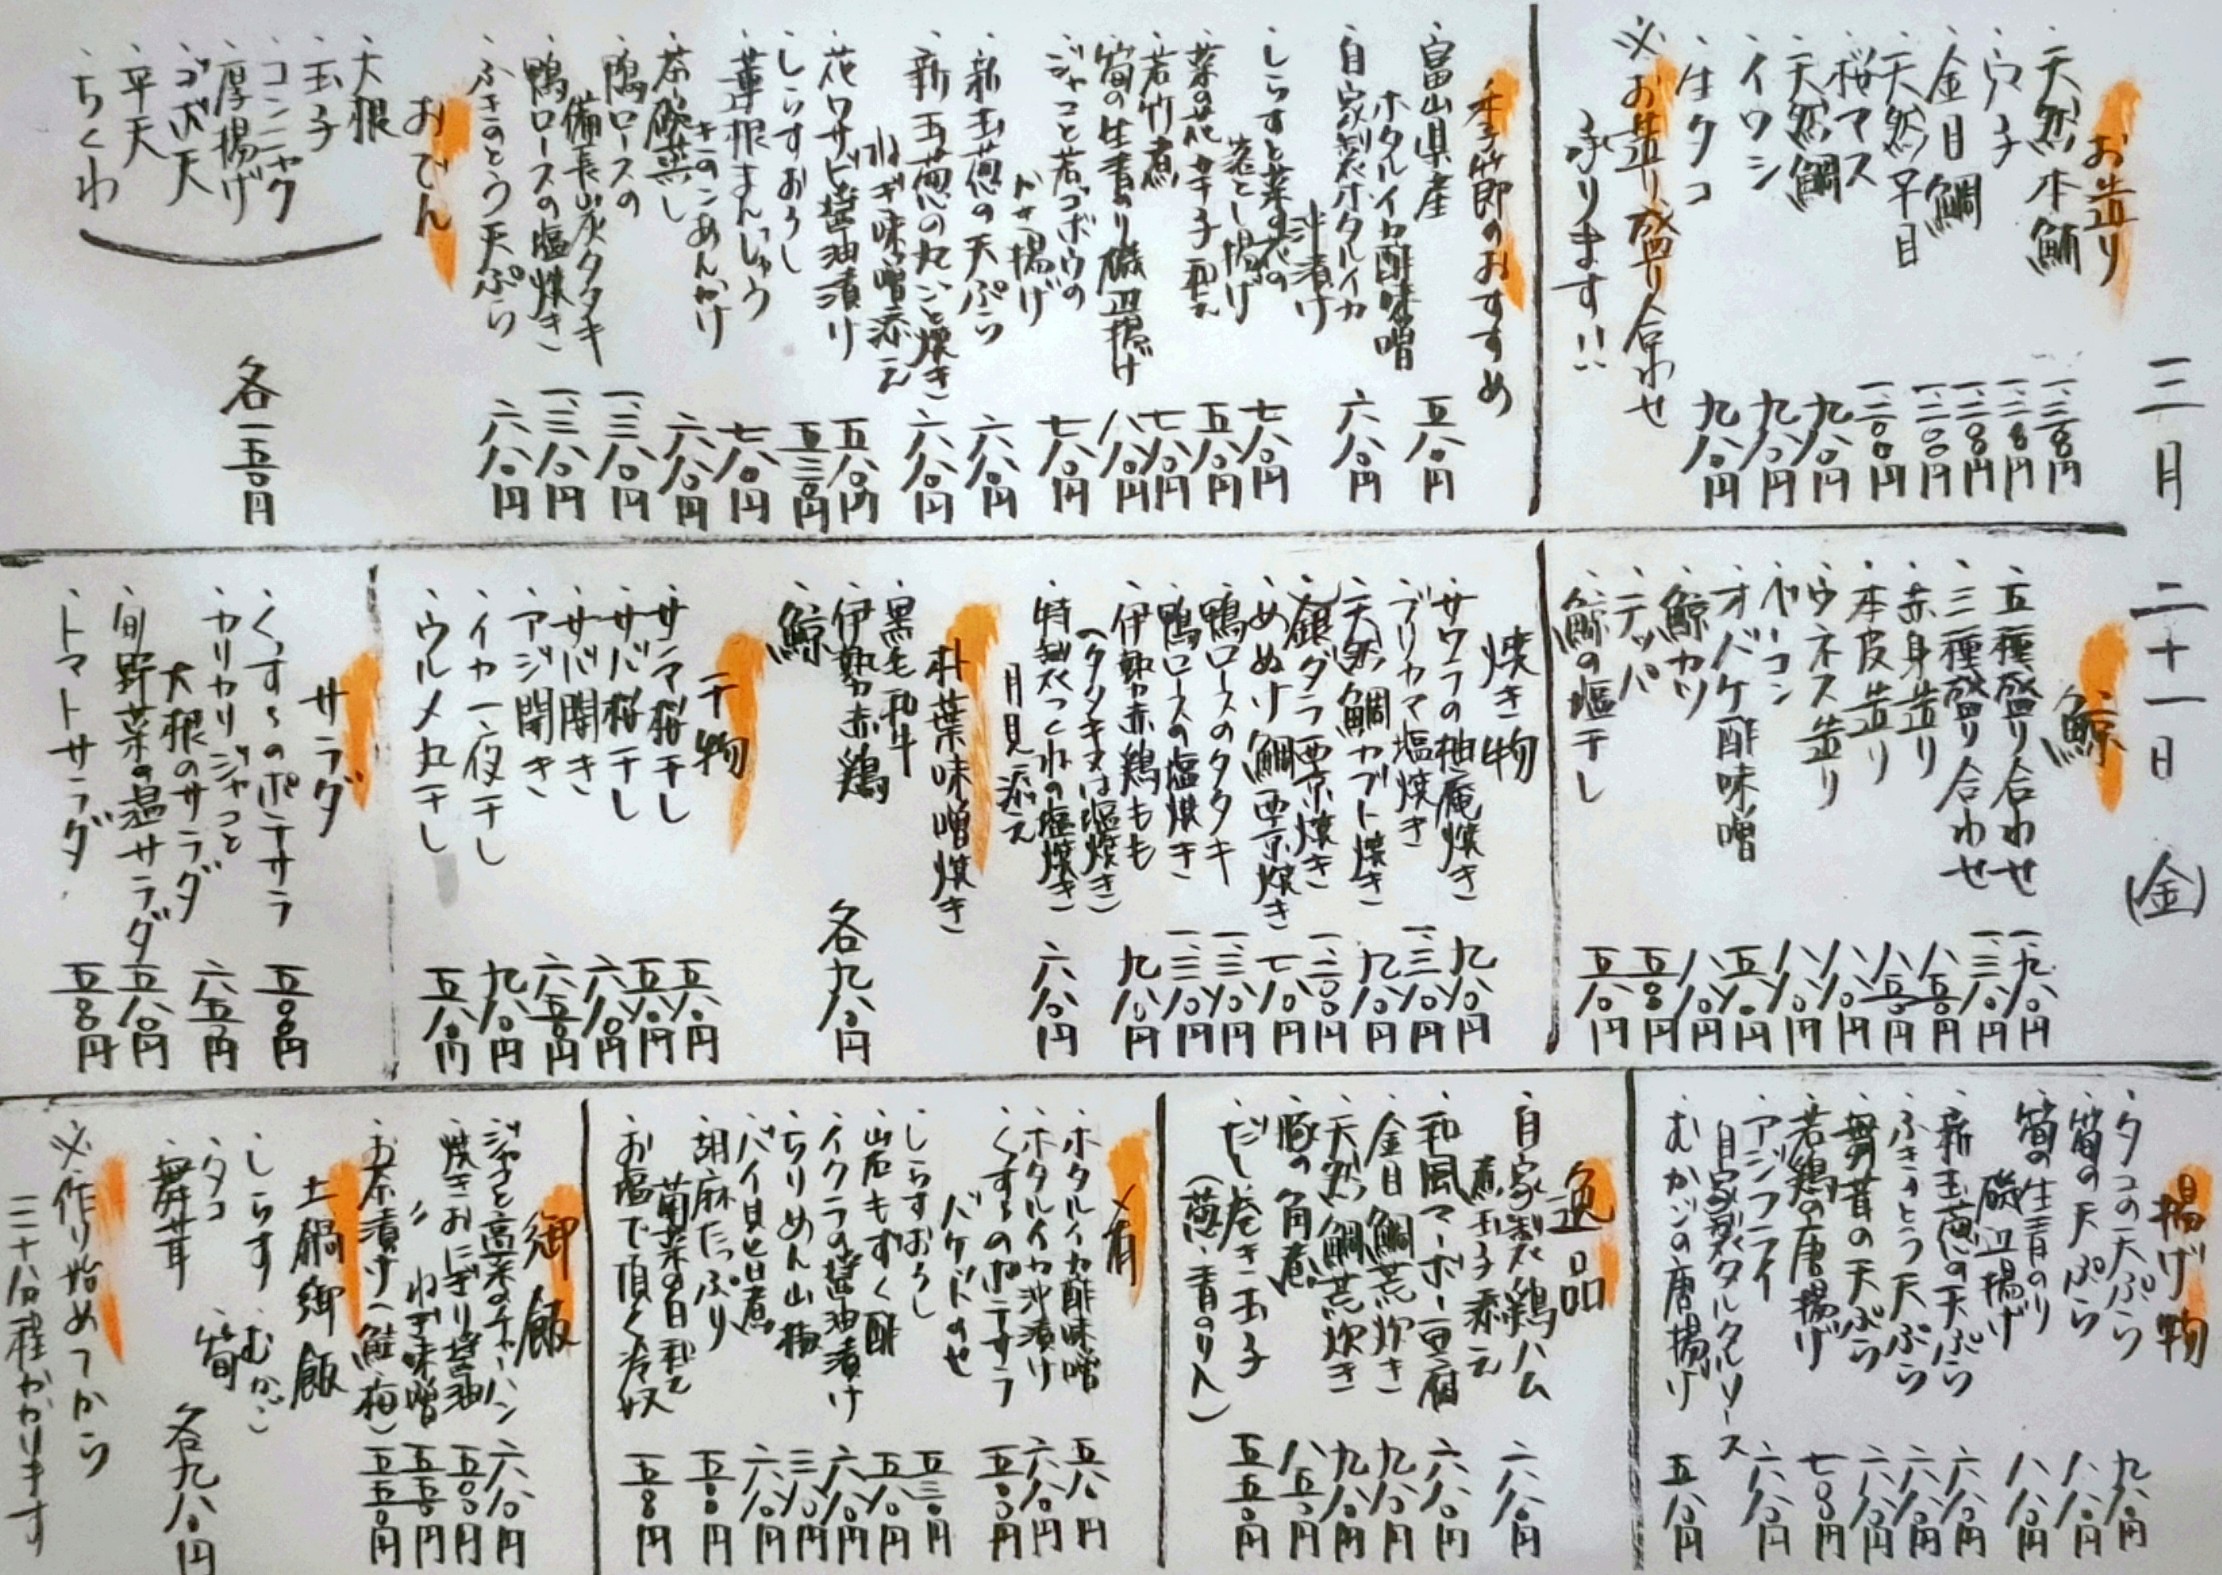 三月二十一日(金)
お造り
・天然本鮪 一、三〇〇円
・穴子 一、二〇〇円
・金目鯛 一、二〇〇円
・天然平目 一、二〇〇円
・桜マス 一、二〇〇円
・天然鯛 九八〇円
・イワシ 九八〇円
・生タコ 九八〇円
※お造り盛り合わせ
承ります!!
季節のおすすめ
・富山県産
ホタルイカ酢味噌 五八〇円
・自家製ホタルイカ
沖漬け 六八〇円
・しらすと菜の花の
落とし揚げ 七八〇円
・菜の花辛子和え 五八〇円
・若竹煮 七八〇円
・筍の生青のり磯辺揚げ 八八〇円
・ジャコと若ゴボウの
かき揚げ 七八〇円
・新玉葱の天ぷら 六八〇円
・新玉葱の丸ごと焼き
ねぎ味噌添え 六八〇円
・花ワサビ醤油漬け 五八〇円
・しらすおろし 五三〇円
・蓮根まんじゅう
きのこあんかけ 七八〇円
・茶碗蒸し 六八〇円
・鴨ロースの
備長炭タタキ 一、三八〇円
・鴨ロースの塩焼き 一、三八〇円
・ふきのとう天ぷら 六八〇円
おでん
・大根
・玉子
・コンニャク
・厚揚げ
・ゴボ天
・平天
・ちくわ
各一五〇円
鯨
・五種盛り合わせ 一、九八〇円
・三種盛り合わせ 一、三八〇円
・赤身造り 八五〇円
・本皮造り 八五〇円
・ウネス造り 八八〇円
・ベーコン 八八〇円
・オバケ酢味噌 五八〇円
・鯨カツ 八八〇円
・テッパ 五五〇円
・鯨の塩干し 五八〇円
焼き物
・サワラの柚庵焼き 九八〇円
・ブリカマ塩焼き 一、三八〇円
・天然鯛カブト焼き 九八〇円
・銀ダラ西京焼き 一、二〇〇円
・めぬけ鯛西京焼き 七八〇円
・鴨ロースのタタキ 一、三八〇円
・鴨ロースの塩焼き 一、三八〇円
・伊勢赤鶏もも
(タタキ又は塩焼き) 九八〇円
・特製つくねの塩焼き
月見添え 六八〇円
朴葉味噌焼き
・黒毛和牛
・伊勢赤鶏
・鯨
各九八〇円
干物
・サンマ桜干し 五八〇円
・サバ桜干し 五八〇円
・サバ開き 六八〇円
・アジ開き 六五〇円
・イカ一夜干し 九八〇円
・ウルメ丸干し 五八〇円
サラダ
・くす〜のポテサラ 五〇〇円
・カリカリジャコと
大根のサラダ 六五〇円
・旬野菜の温サラダ 五八〇円
・トマトサラダ 五〇〇円
揚げ物
・タコの天ぷら 九八〇円
・筍の天ぷら 八八〇円
・筍の生青のり
磯辺揚げ 八八〇円
・新玉葱の天ぷら 六八〇円
・ふきのとう天ぷら 六八〇円
・舞茸の天ぷら 六八〇円
・若鶏の唐揚げ 七〇〇円
・アジフライ
自家製タルタルソース 六八〇円
・むかごの唐揚げ 五八〇円
逸品
・自家製鶏ハム
煮玉子添え 六八〇円
・和風マーボー豆腐 六八〇円
・金目鯛荒炊き 九八〇円
・天然鯛荒炊き 九八〇円
・豚の角煮 八五〇円
・だし巻き玉子
(葱・青のり入) 五五〇円
肴
・ホタルイカ酢味噌 五八〇円
・ホタルイカ沖漬け 六八〇円
・くす〜のポテサラ
バケットのせ 五〇〇円
・しらすおろし 五三〇円
・岩もずく酢 五八〇円
・イクラの醤油漬け 六八〇円
・ちりめん山椒 三八〇円
・バイ貝旨煮 六八〇円
・胡麻たっぷり
菊菜の白和え 五五〇円
・お塩で頂く冷奴 五〇〇円
御飯
・ジャコと高菜のチャーハン 六八〇円
・焼きおにぎり醤油 五〇〇円
・〃 ねぎ味噌 五五〇円
・お茶漬け(鮭・梅) 五五〇円
土鍋御飯
・しらす ・むかご
・タコ ・筍
・舞茸
各九八〇円
※作り始めてから
三十分程かかります